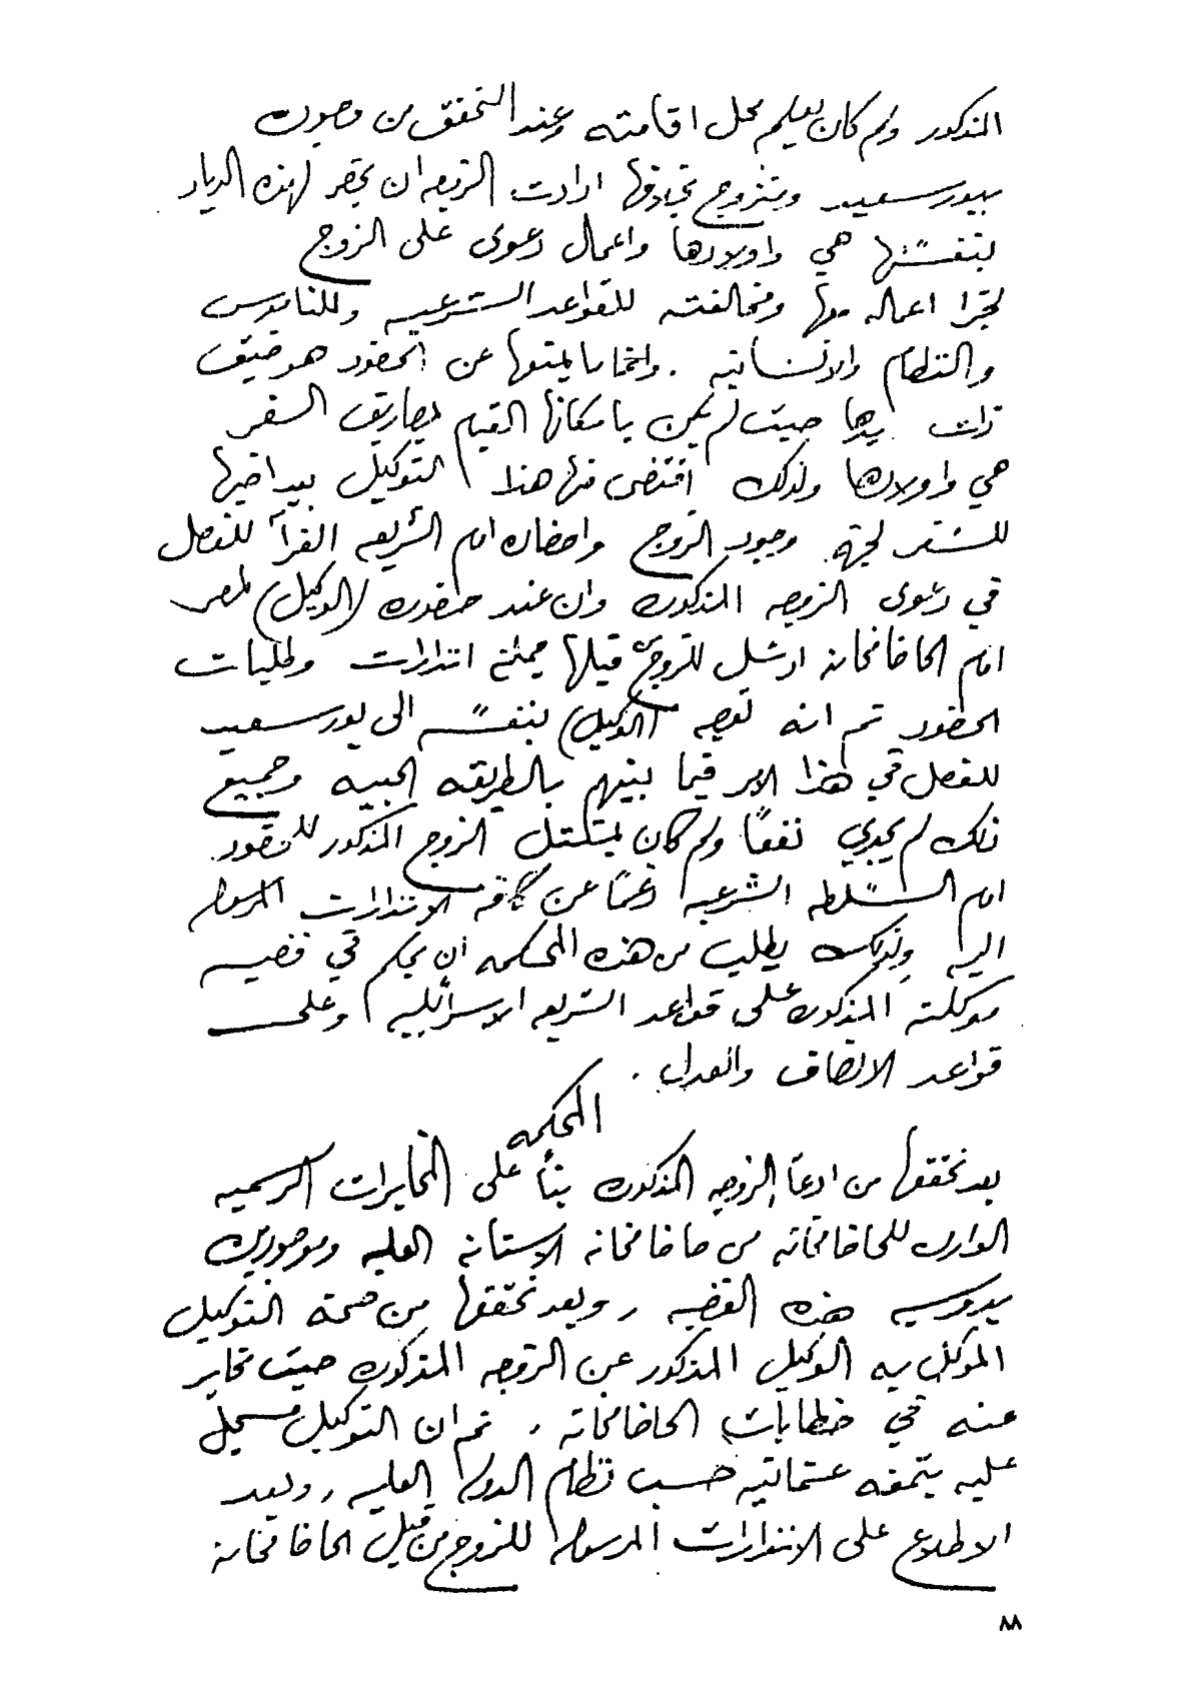 المذكور ولم كان يعلم محل اقامته وعند التحقق من وجوده
ببورسعيد ومتزوج بخلافها ارادت الزوجه ان تحضر لهذه الديار
بنفسها هي واولادها واعمال دعوى على الزوج
لجزا اعماله معها ومخالفته للقواعد الشرعيه وللناموس
والنظام والانسانيه . وانما ما يمنعها عن الحضور هو ضيق
ذات يدها حيث لم يكن بامكانها القيام بمصاريف السفر
هي واولادها ولذلك اقتضى منها هذا التوكيل بيد اخيها
للسفر لجهة وجود الزوج واحضاره امام الشريعه الغرآ للفصل
في دعوى الزوجه المذكوره وان عند حضوره (الوكيل) لمصر
امام الحاخامخانه ارسل للزوج قبلها جملة انذارات وطلبات
الحضور ثم انه توجه (الوكيل) بنفسه الى بورسعيد
للفصل في هذا الامر فيما بينهم بالطريقه الحبيه وجميع
ذلك لم يجدي نفعًا ولم كان يمتثل الزوج المذكور للحضور
امام السلطه الشرعيه رغمًا عن كافة الانذارات المرسوله
اليه ولذلك يطلب من هذه المحكمه ان يحكم في قضيه
موكلته المذكوره على قواعد الشريعه الاسرائيليه وعلى
قواعد الانصاف والعدل .
المحكمه
بعد تحققها من ادعآ الزوجه المذكوره بنآ على المخابرات الرسميه
الوارده للحاخامخانه من حاخامخانه الاستانه العليه وموجودين
بدوسيه هذه القضيه , وبعد تحققها من صحة التوكيل
الموكل به الوكيل المذكور عن الزوجه المذكوره حيث تخابر
عنه في خطابات الحاخامخانه , ثم ان التوكيل مسجل
عليه بتمغه عثمانيه حسب نظام الدوله العليه , وبعد
الاطلاع على الانذارات المرسوله للزوج من قبل الحاخامخانه
٨٨